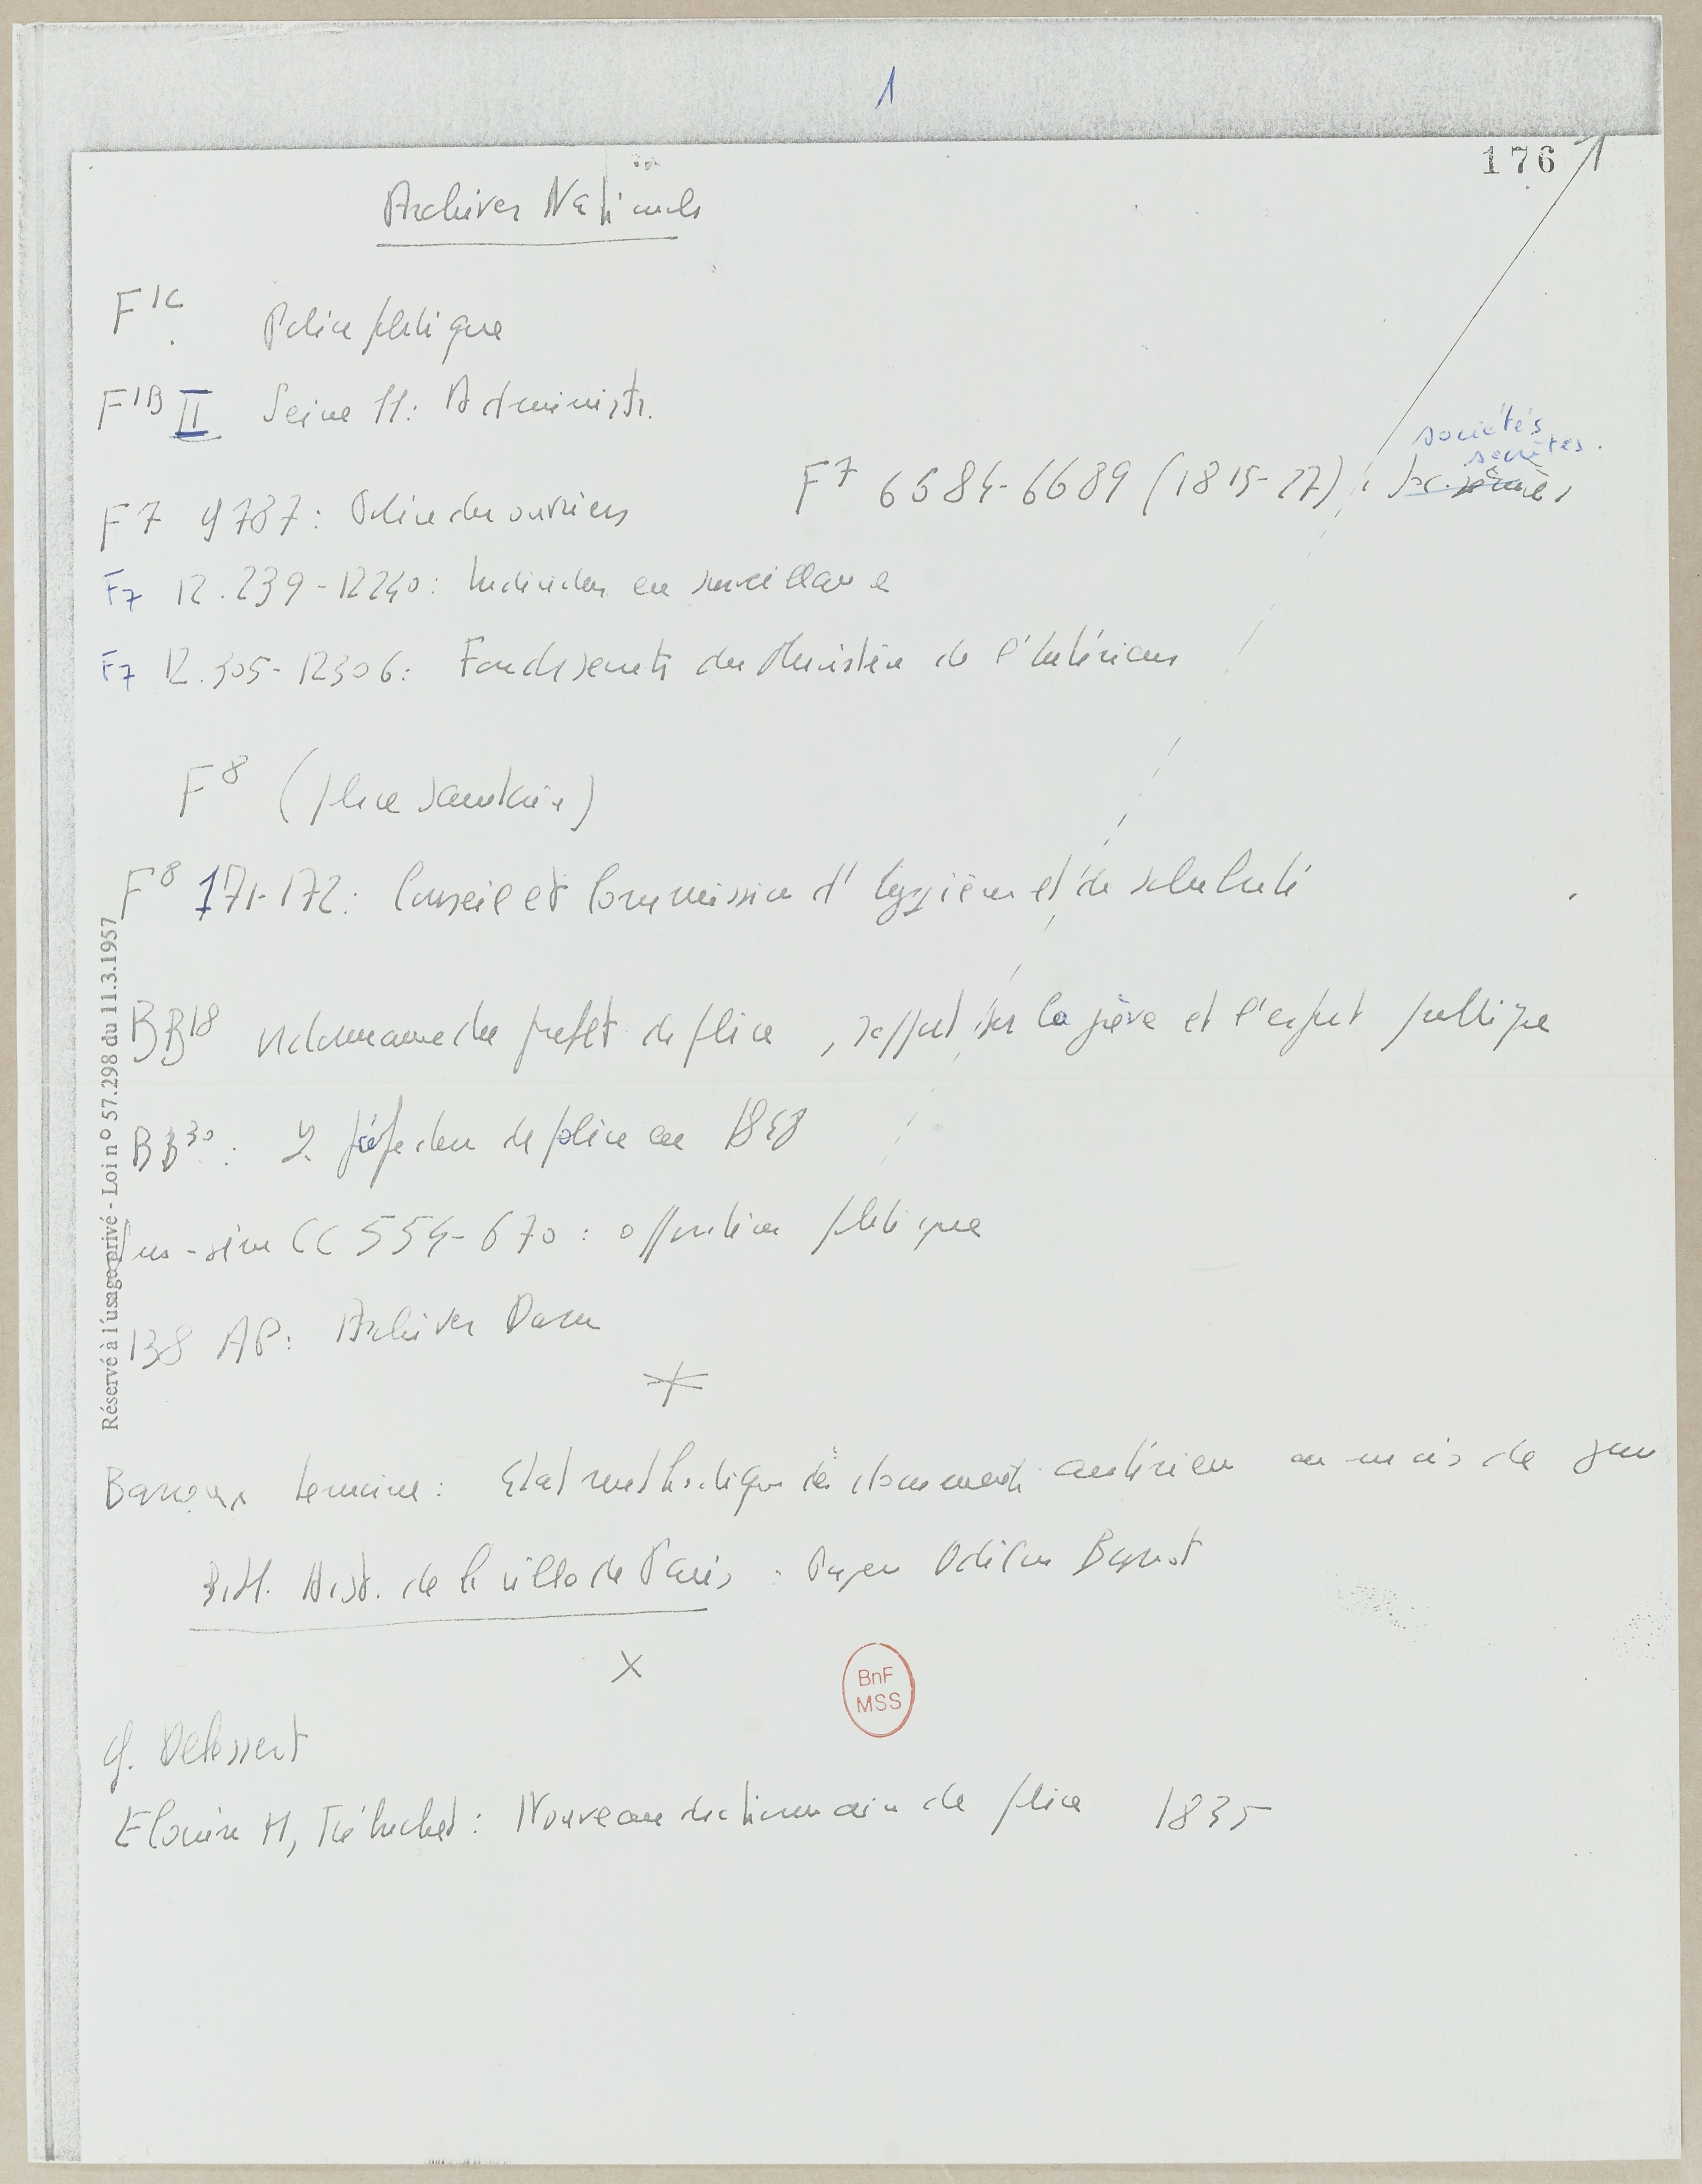 1
176
Archives Nationales
F1C Police politique
F1B II Seine 11: Administr.
sociétés
secrètes.
F7 6684-6689 (1815-27) : soc. secrètes
F7 9787: Police des ouvriers
F7 12.239-12240: Individus en surveillance
F7 12.305-12306: Fonds secrets du Ministère de l'Intérieur
F8 (police sanitaire)
F8 171-172: Conseil et Commission d'hygiène et de salubrité
BB18 du préfet de police, rapport sur la grève et l'esprit public
BB30: préfecture de police en 1848
Sous-série CC 554-670: opposition politique
138 AP: Archives Daru
Barroux : Etat méthodique des documents antérieurs au mois de
Bibl. Hist. de la ville de Paris: Papiers Odilon Barrot
x
BnF
MSS
G. Delessert
Elouin M, Trébuchet: Nouveau dictionnaire de police 1835
Réservé à l'usage privé - Loi nº 57.298 du 11.3.1957